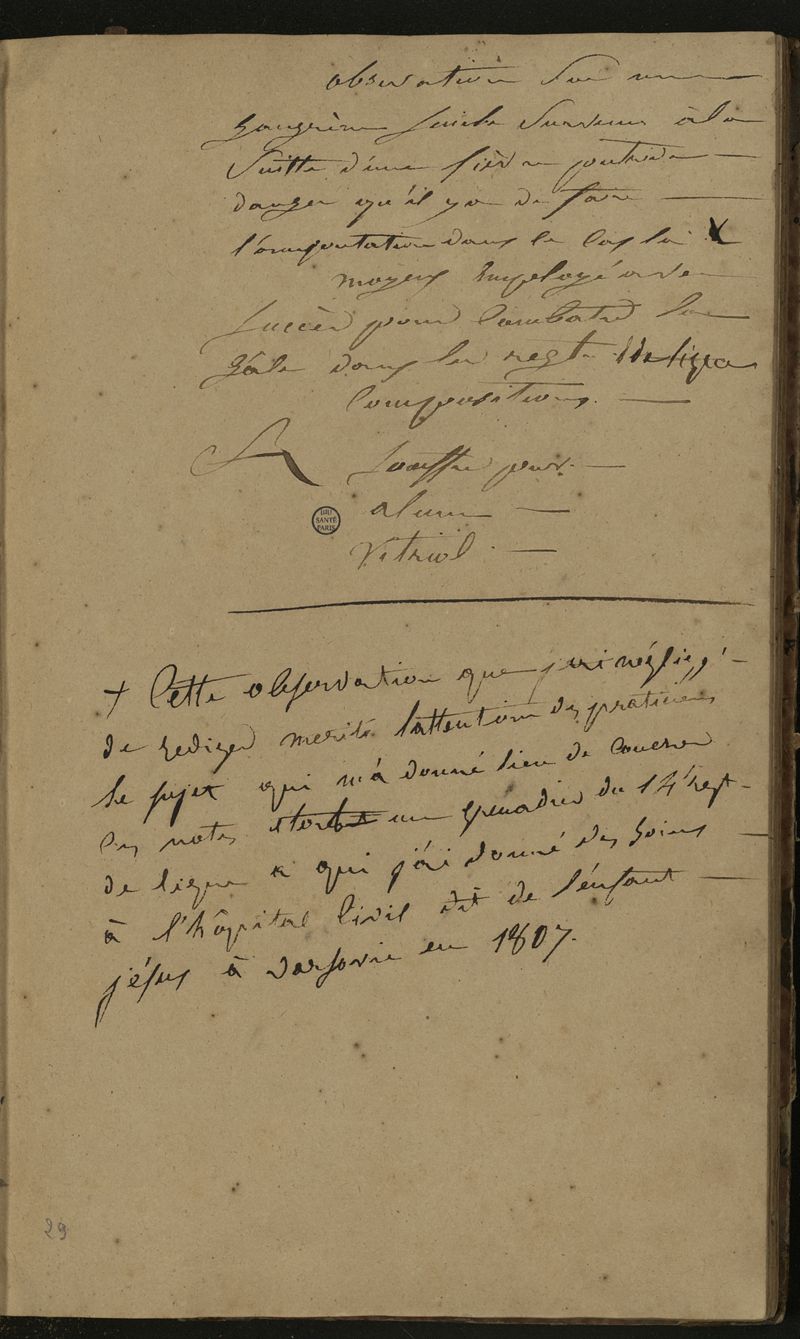 observation sur une
gangrène seiche survenue à la
suitte d'une fièvre putride
danger qu'il y a de faire
l'amputation dans le cas la X
moyens employé avec
succès pour combatre la
gâle dans le regt de ligne
compositions.
R souffre pur
BIU
SANTÉ
PARIS
alum
vitriol.
+ Cette observation que j'ai négligé
de rediger merite l'attention des praticiens
le sujet qui m'a donné lieu de
ces notes un grenadier du 14e regt
de ligne a qui j'ai donné des soins
à l'hôpital civil dit de l'enfant
jésus à varsovie en 1807.
29